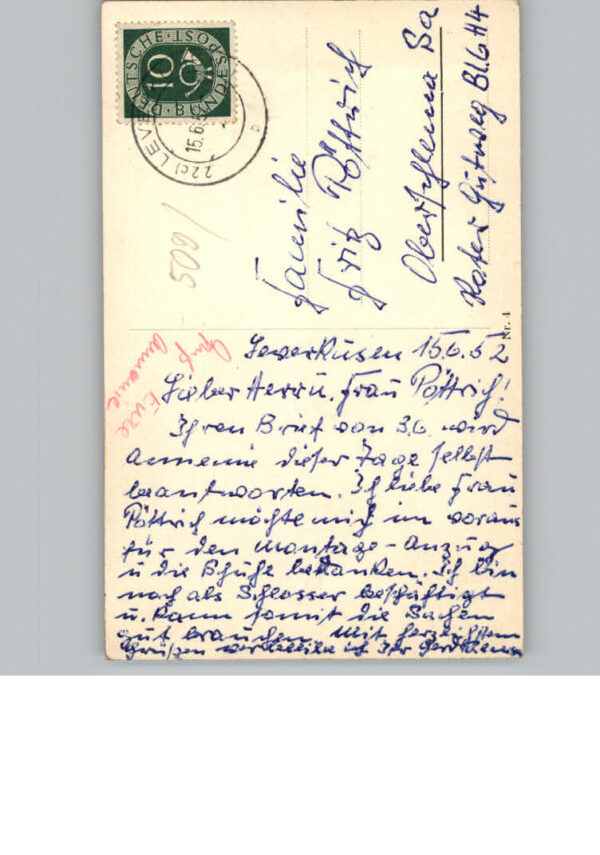 DEUTSCHE · BUNDESPOST
10
(22c) LEVE
15.6.5
b
Familie
Fritz Pöttrich
Oberschlema Sa
Roter Gutweg Bl.6 H4
509/
Nr. 4
Gruß
Annemie
Eure
Leverkusen 15.6.52
Lieber Herr u. Frau Pöttrich!
Ihren Brief von 3.6. wird
Annemie dieser Tage selbst
beantworten. Ich liebe Frau
Pöttrich möchte mich im voraus
für den Montage-Anzug
u die Schuhe bedanken. Ich bin
noch als Schlosser beschäftigt
u. kann somit die Sachen
gut brauchen. Mit herzlichsten
Grüßen verbleibe ich Ihr